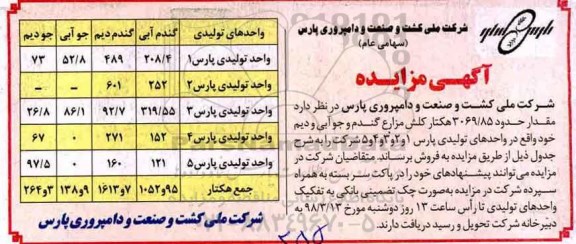 شرکت ملی کشت و صنعت و دامپروری پارس
(سهامی عام)
آگهی مزایده
شرکت ملی کشت و صنعت و دامپروری پارس در نظر دارد
مقدار حدود ۳۰۶۹/۸۵ هکتار کلش مزارع گندم و جو آبی و دیم
خود واقع در واحدهای تولیدی پارس ۱و۲و۳و۴و۵ شرکت را به شرح
جدول ذیل از طریق مزایده به فروش برساند. متقاضیان شرکت در
مزایده می‌توانند پیشنهادهای خود را در پاکت سربسته به همراه
سپرده شرکت در مزایده به‌صورت چک تضمینی بانکی به تفکیک
واحدهای تولیدی تا رأس ساعت ۱۳ روز دوشنبه مورخ ۹۸/۳/۱۳ به
دبیرخانه شرکت تحویل و رسید دریافت دارند.
واحدهای تولیدی گندم آبی گندم دیم جو آبی جو دیم
واحد تولیدی پارس۱ ۲۰۸/۴ ۴۸۹ ۵۲/۸ ۷۳
واحد تولیدی پارس۲ ۲۵۲ ۶۰۱ – –
واحد تولیدی پارس۳ ۳۱۹/۵۵ ۹۲/۷ ۸۶/۱ ۲۶/۸
واحد تولیدی پارس۴ ۱۵۲ ۲۷۱ ۰ ۶۷
واحد تولیدی پارس۵ ۱۲۱ ۱۶۰ ۰ ۹۷/۵
جمع هکتار ۹۵و۱۰۵۲ ۷و۱۶۱۳ ۹و۱۳۸ ۳و۲۶۴
شرکت ملی کشت و صنعت و دامپروری پارس